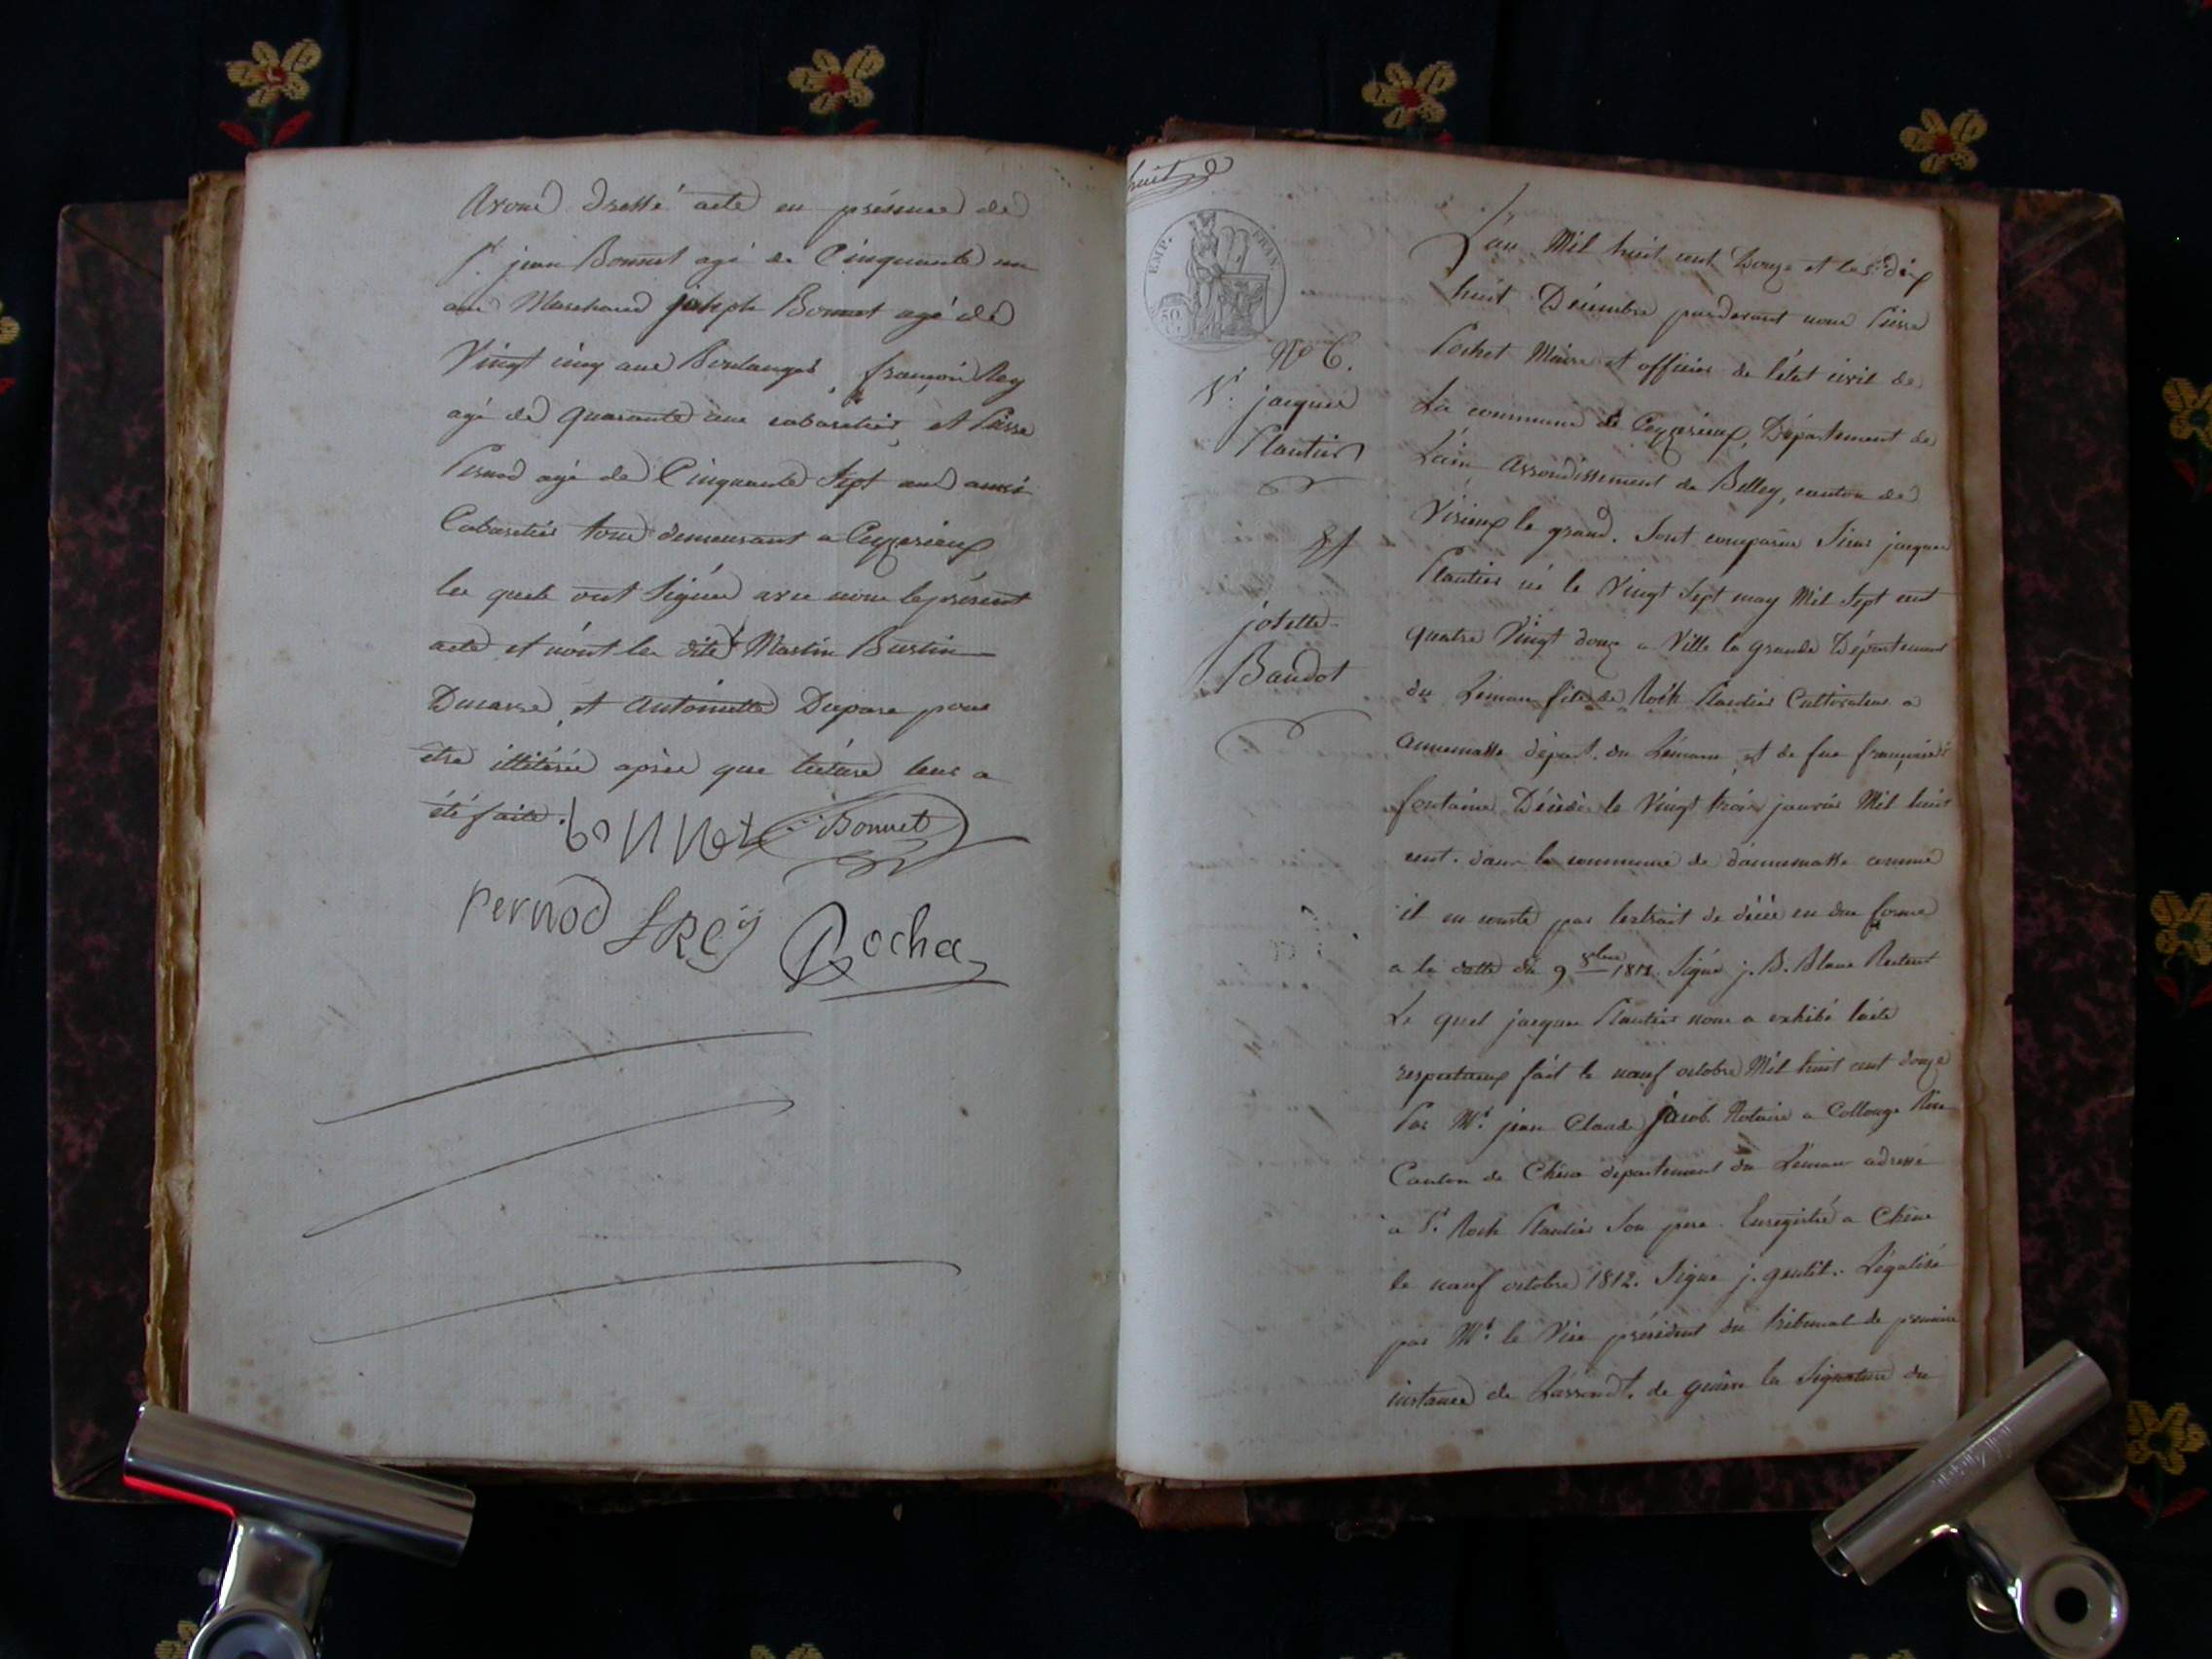 avons dressé acte en présence de
Sr. jean Bonnet agé de Cinquante un
ans Marchand joseph Bonnet agé de
Vingt cinq ans Boulanger, françois Rey
agé de quarante ans cabaretier, et Pierre
Pernod agé de Cinquante Sept ans aussi
Cabaretier tous demeurant a Ceyzerieux
les quels ont Signés avec nous le présent
acte et nont les dits Martin Burtin
et antoinette Dupare pour
etre illiterés après que lecture leur a
été faite.
bonnet Bonnet
Pernod f Rey Pochet
huit
EMP. FRAN.
50
No 6.
Sr. jacques
Plantier
Et
josette
Baudot
L'an Mil huit cent Douze et les dix
huit Décembre pardevant nous Pierre
Pochet Maire et officier de l'état civil de
La commune de Ceyzerieux, Département de
L'ain Arrondissement de Belley, canton de
Virieux le grand. Sont comparus Sieur jacques
Plantier né le Vingt Sept may Mil Sept cent
quatre Vingt douze a Ville la grande Département
du Léman fils de Roch Plantier Cultivateur a
annemasse départ. du Léman et de fue françoise
fontaine Décédée le Vingt trois janvier Mil huit
cent. dans la commune de d'annemasse comme
il en conste par lextrait de décés en due forme
a la datte du 9 8bre 1812. Signé j. B. Blanc
Le quel jacques Plantier nous a exhibé lacte
respectueux fait le neuf octobre Mil huit cent douze
Par Mr. jean Claude jacob Notaire a Collonge
Canton de Chêne département du Léman adressé
a Sr. Roch Plantier Son pere. Enregistré a Chêne
le neuf octobre 1812. Signé j. gentil. Légalisé
par Mr. le Vice président du tribunal de premiere
instance de L'arrondt. de genève la Signature du